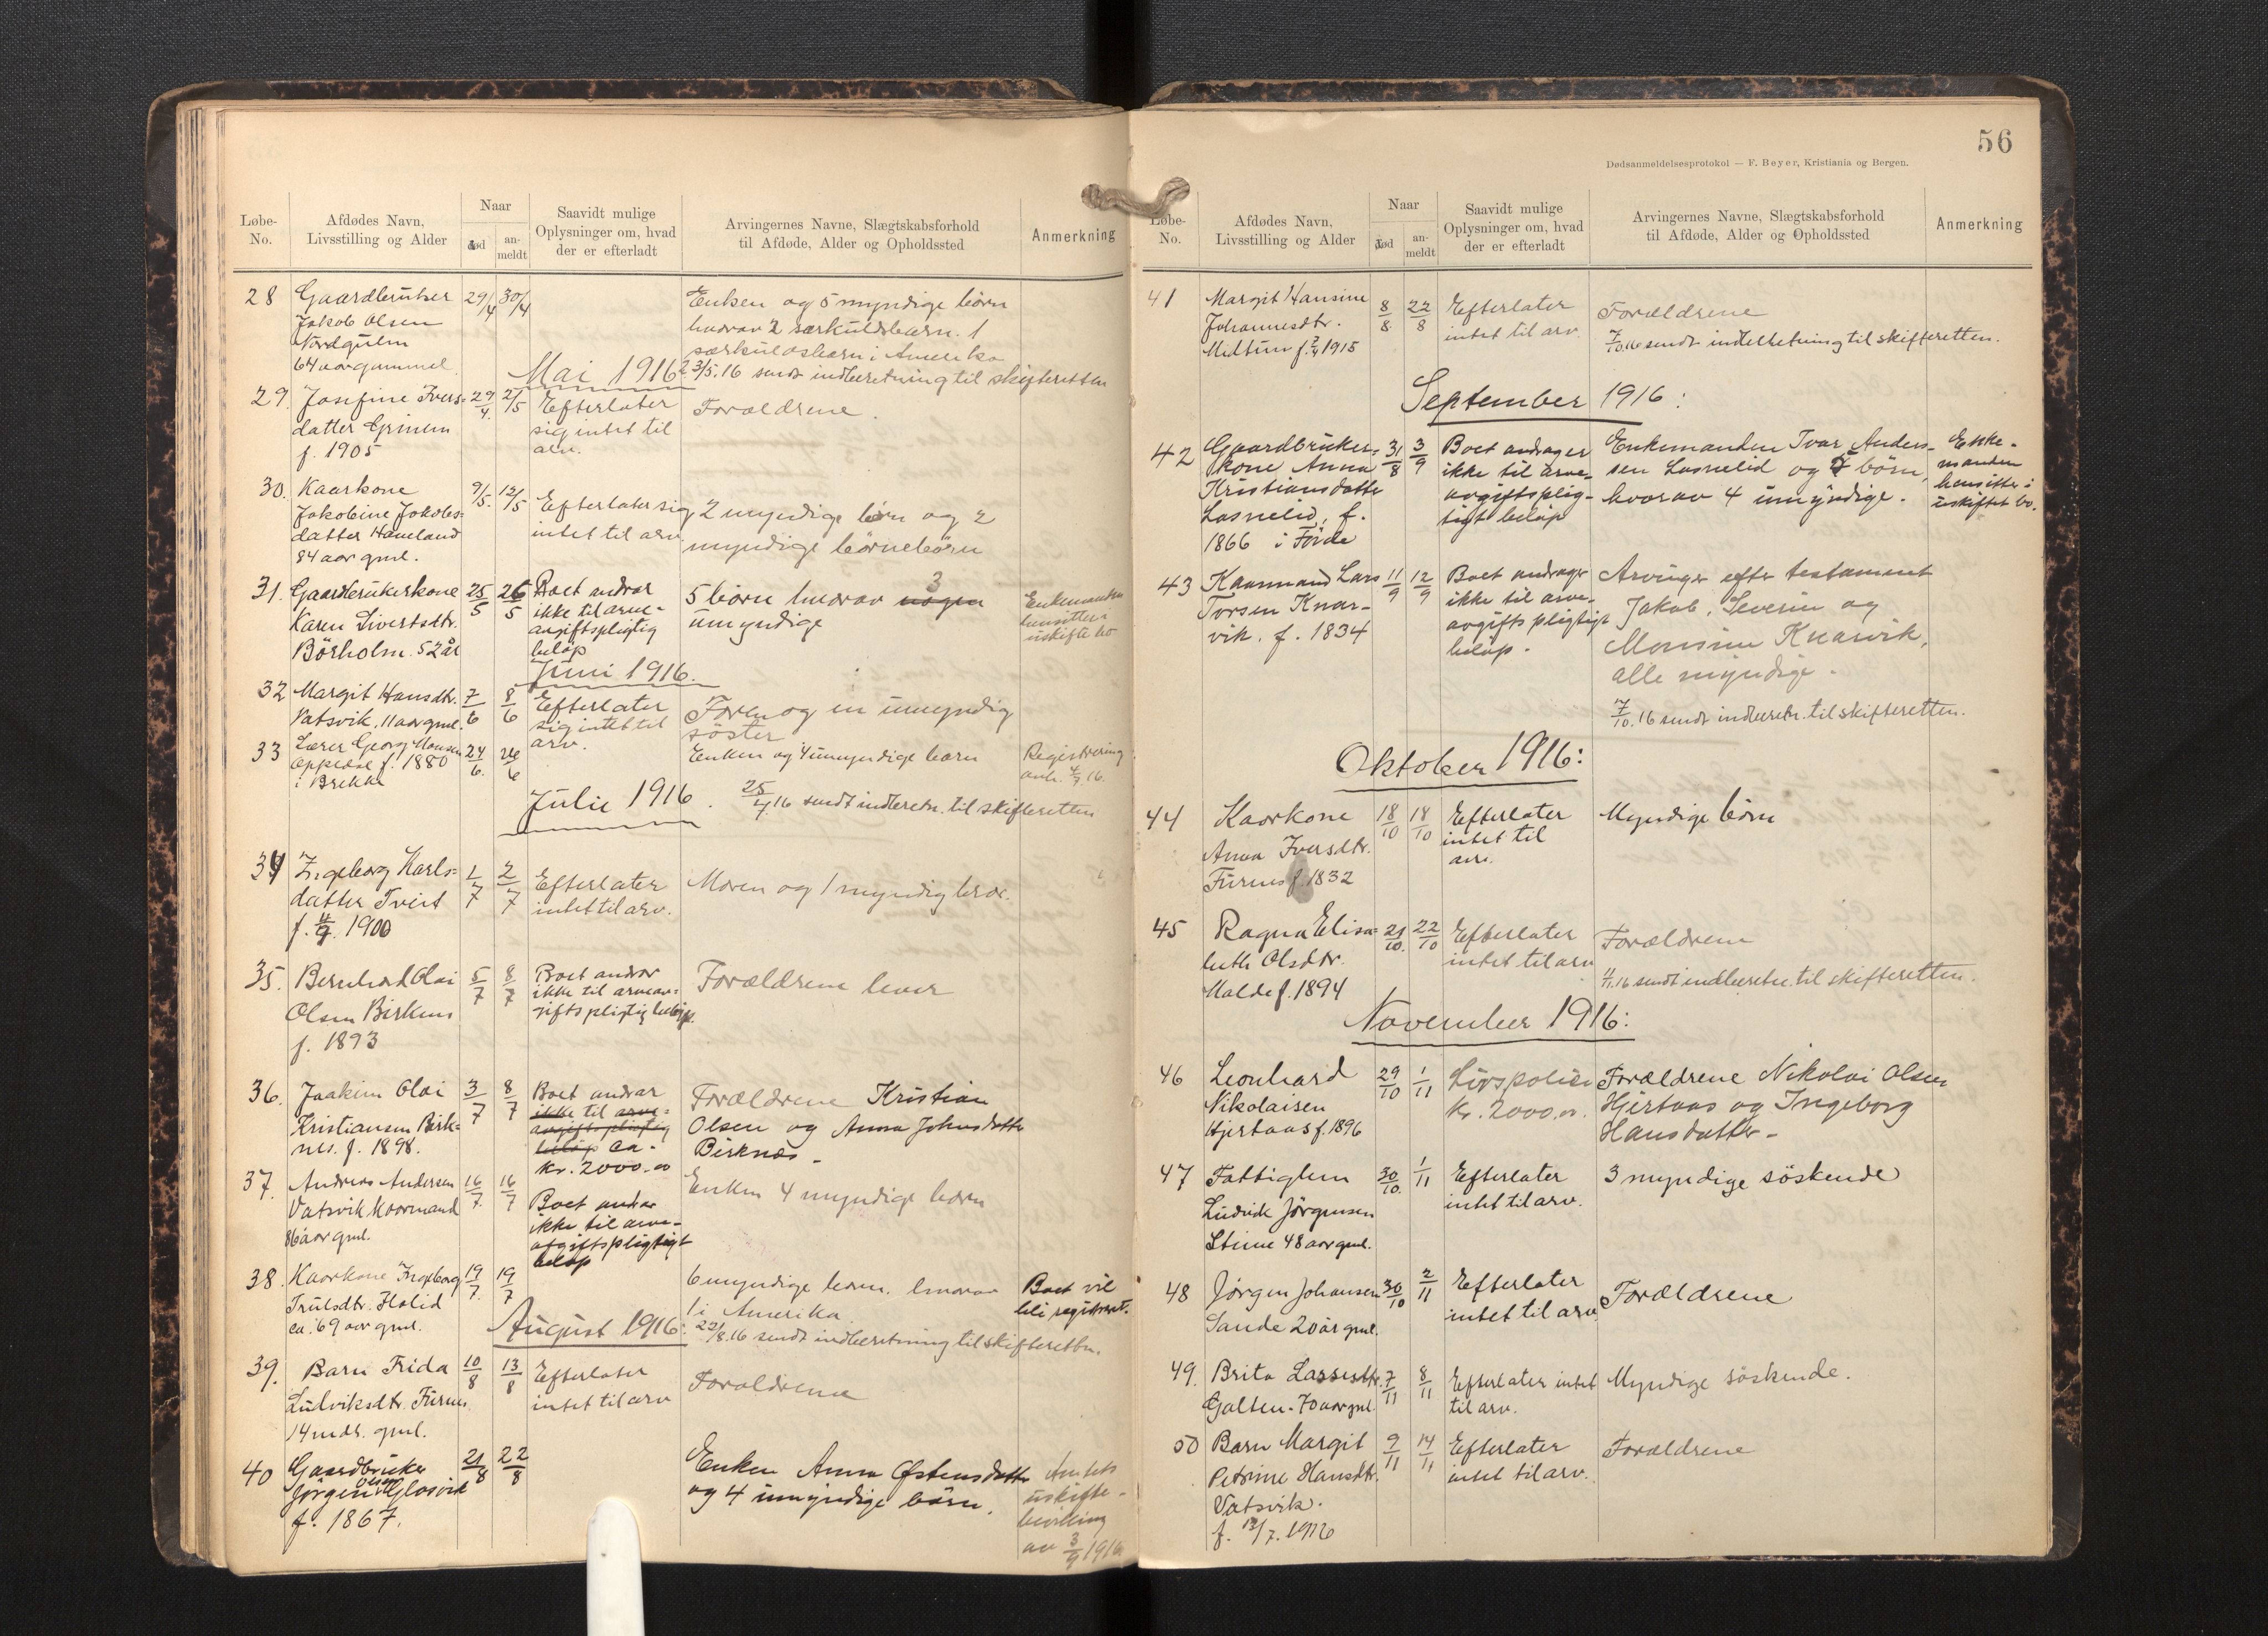 Løbe-
No.
Afdødes Navn,
Livsstilling og Alder
Naar
død
an-
meldt
Saavidt mulige
Oplysninger om, hvad
der er efterladt
Arvingernes Navne, Slægtskabsforhold
til Afdøde, Alder og Opholdssted
Anmerkning
28 Gaardbruker 29/4 30/4 Enken og 5 myndige børn
Jakob Olsen hvorav 2 særkuldsbarn. 1
Nordgulen særkuldsbarn i Amerika
64 aar gammel
Mai 1916 23/5.16 sendt indberetning til skifteretten
29. Josefine Ivers- 29/4. 2/5 Efterlater Forældrene.
datter Grinem sig intet til
f. 1905 arv.
30. Kaarkone 9/5. 12/5 Efterlater sig 2 myndige børn og 2
Jakobine Jakobs- intet til arv. myndige børnebörn
datter Haveland
84 aar gml.
31. Gaardbrukerkone 25/5 26/5 Boet andrar 5 børn hvorav nogen 3 Enkemanden
Karen Sivertsdtr. ikke til arve- umyndige hensitter i
Börholm. 52 år avgiftspligtig uskifte bo
beløp
Juni 1916.
32 Margit Hansdtr. 7/6 8/6 Efterlater Faren og en umyndig
Vatsvik, 11 aar gml. sig intet til söster
arv.
33 Lærer Georg Monsen 24/6. 26/6 Enken og 4 umyndige barn Registrering
Oppedal f. 1880 anh. 4/7.16.
i Brekke
Julie 1916. 25/7.16 sendt indberetn. til skifteretten
34 Ingeborg Karls- 1/7 2/7 Efterlater Moren og 1 myndig bror.
datter Tveit intet til arv.
f. 1900
35. Bernhard Olai 5/7 8/7 Boet andrar Forældrene lever
Olsen Birknes ikke til arveav-
f. 1893 giftspligtig beløp.
36. Joakim Olai 3/7 8/7 Boet andrar Forældrene Kristian
Kristiansen Birk- ikke til arve- Olsen og Anna Johnsdatter
nes. f. 1898. avgiftspligtig Birknes -
beløp ca.
kr. 2000.00
37. Andreas Andersen 16/7. 16/7 Boet andrar Enken 4 myndige barn
Vatsvik Kaarmand ikke til arve-
86 aar gml. afgiftspligtigt
beløp
38. Kaarkone Ingeborg 19/7. 19/7 6 myndige barn. hvorav Boet vil
Trulsdtr. Halid 1 i Amerika bli registreret.
ca. 69 aar gml.
August 1916: 22/8.16 sendt indberetning til skifteretten.
39. Barn Frida 10/8 13/8 Efterlater Forældrene
Ludviksdtr. Furnes intet til arv
14 mdr. gml.
40 Gaardbruker 21/8 22/8 Enken Anna Østensdatter Amtets
Jørgen Olsen Glosvik og 4 umyndige børn. uskifte-
f. 1867. bevilling
av 3/9 1916
56
Dødsanmeldelsesprotokol — F. Beyer, Kristiania og Bergen.
Løbe-
No.
Afdødes Navn,
Livsstilling og Alder
Naar
død
an-
meldt
Saavidt mulige
Oplysninger om, hvad
der er efterladt
Arvingernes Navne, Slægtskabsforhold
til Afdøde, Alder og Opholdssted
Anmerkning
41 Margit Hansine 8/8. 22/8 Efterlater Forældrene
Johannesdtr. intet til arv. 7/10.16 sendt indberetning til skifteretten.
Midtun f. 1915
September 1916:
42 Gaardbruker- 31/8 3/9 Boet andrager Enkemanden Ivar Anders- Enke-
kone Anna ikke til arve- sen Lasnelid og børn, manden
Kristiansdatter avgiftsplig- hvorav 4 umyndige. hensitter i
Lasnelid, f. tigt beløp uskiftet bo.
1866 i Förde
43 Kaarmand Lars 11/9 12/9 Boet andrager Arvinger efter testament
Torsen Knar- ikke til arve- Jakob, Severin og
vik. f. 1834 avgiftspligtigt Monsine Knarvik,
beløp. alle myndige.
7/10.16 sendt indberetn. til skifteretten.
Oktober 1916:
44 Kaarkone 18/10 18/10 Efterlater Myndige börn
Anna Iversdtr. intet til
Furnes f. 1832 arv.
45 Ragna Elisa- 21/10. 22/10 Efterlater Forældrene
beth Olsdtr. intet til arv
Halde f. 1894 4/11.16 sendt indberetn. til skifteretten.
November 1916:
46 Leonhard 29/10 1/11 Livspolise Forældrene Nikolai Olsen
Nikolaisen kr. 2000.00. Hjertaas og Ingeborg
Hjertaas f. 1896 Hansdatter -
47 Fattiglem 30/10. 1/11 Efterlater 3 myndige söskende
Ludvik Jørgensen intet til arv.
Stime 48 aar gml.
48 Jørgen Johansen 30/10 2/11 Efterlater Forældrene
Sande 20 år gml. intet til arv.
49. Brita Lassesdtr. 7/11 8/11 Efterlater intet Myndige söskende.
Galten. 70 aar gml. til arv.
50 Barn Margit 9/11 14/11 Efterlater Forældrene
Petrine Hansdtr. intet til arv.
Vatsvik.
f. 12/7. 1916